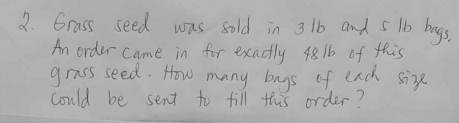 2. Grass seed was sold in 3 lb and 5 lb bags.
An order came in for exactly 48 lb of this
grass seed. How many bags of each size
could be sent to fill this order?